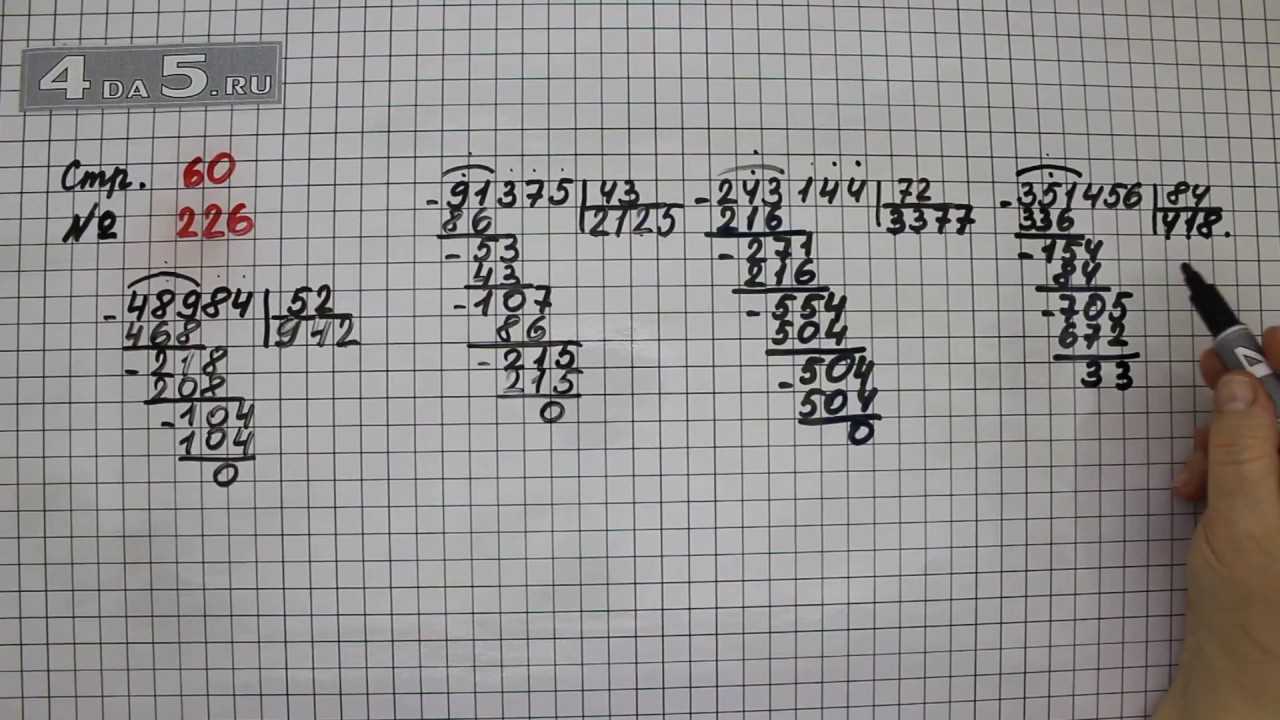 4 ДА 5.RU
Стр. 60
№ 226
- 48984 | 52
468 | 942
- 218
208
- 104
104
0
- 91375 | 43
86 | 2125
- 53
43
- 107
86
- 215
215
0
- 243144 | 72
216 | 3377
- 271
216
- 554
504
- 504
504
0
- 351456 | 84
336 | 418.
- 154
84
- 705
672
33